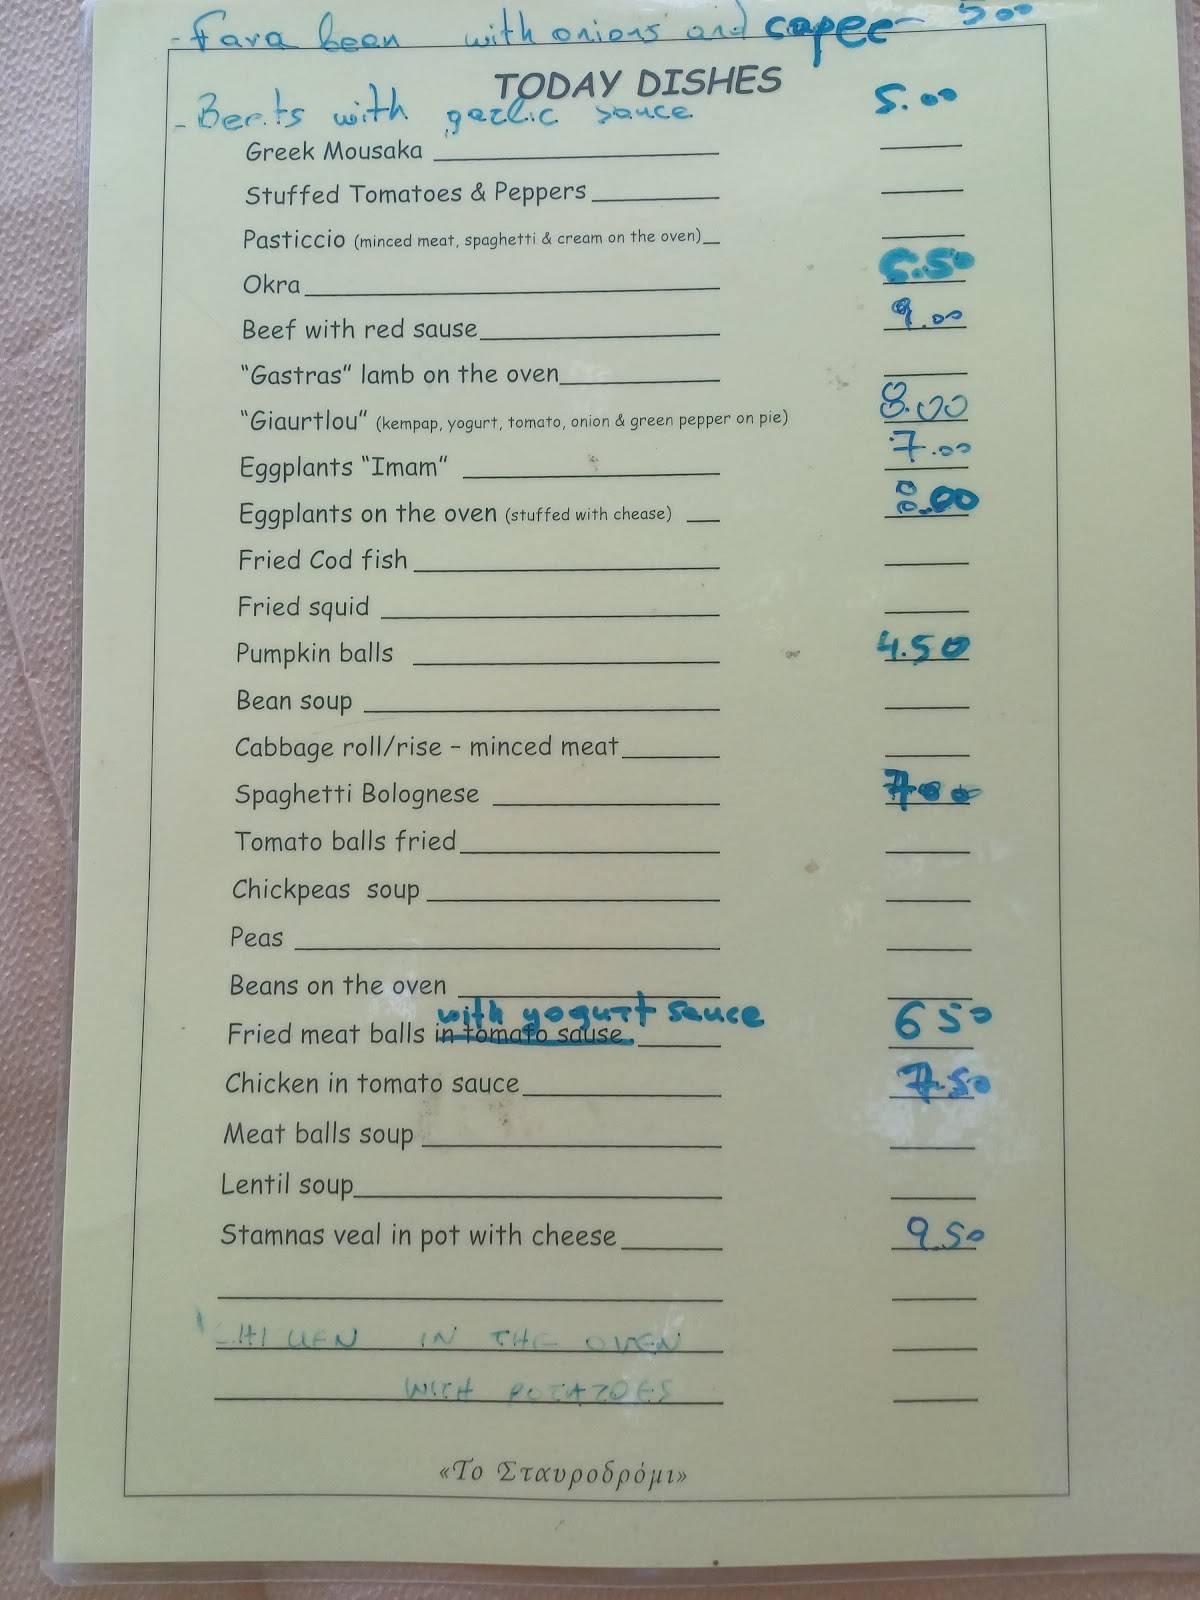 - Fava bean with onions and caper - 500
TODAY DISHES
- Beets with garlic sauce 5.00
Greek Mousaka
Stuffed Tomatoes & Peppers
Pasticcio (minced meat, spaghetti & cream on the oven)
Okra 6.50
Beef with red sause 9.00
“Gastras” lamb on the oven
“Giaurtlou” (kempap, yogurt, tomato, onion & green pepper on pie) 8.00
Eggplants “Imam” 7.00
Eggplants on the oven (stuffed with chease) 8.00
Fried Cod fish
Fried squid
Pumpkin balls 4.50
Bean soup
Cabbage roll/rise – minced meat
Spaghetti Bolognese 700
Tomato balls fried
Chickpeas soup
Peas
Beans on the oven
with yogurt sauce
Fried meat balls in tomato sause 650
Chicken in tomato sauce 7.50
Meat balls soup
Lentil soup
Stamnas veal in pot with cheese 9.50
CHIKEN IN THE OVEN
WITH POTATOES
«Το Σταυροδρόμι»